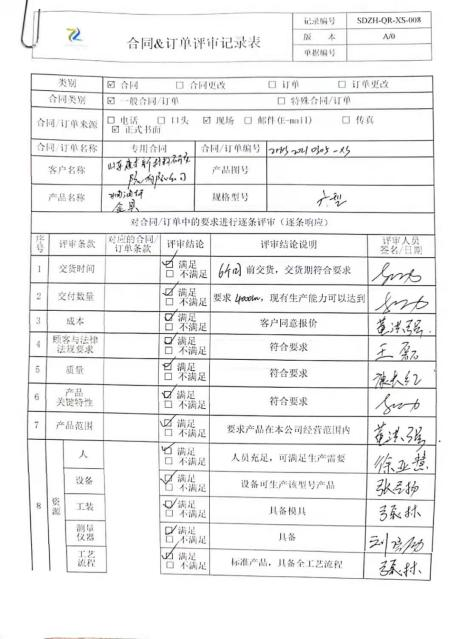 记录编号 SDZH-QR-XS-008
合同&订单评审记录表 版 本 A/0
单据编号
类别 ☑ 合同 □ 合同更改 □ 订单 □ 订单更改
合同类别 ☑ 一般合同/订单 □ 特殊合同/订单
合同/订单来源 □ 电话 □ 口头 ☑ 现场 □ 邮件(E-mail) □ 传真
☑ 正式书面
合同/订单名称 专用合同 合同/订单编号
客户名称 产品图号
产品名称 金具 规格型号
对合同/订单中的要求进行逐条评审(逐条响应)
序号 评审条款 对应的合同/订单条款 评审结论 评审结论说明 评审人员签名/日期
1 交货时间 ☑ 满足 □ 不满足 前交货,交货期符合要求
2 交付数量 ☑ 满足 □ 不满足 要求 ,现有生产能力可以达到
3 成本 ☑ 满足 □ 不满足 客户同意报价 黄洪强
4 顾客与法律法规要求 ☑ 满足 □ 不满足 符合要求 王磊
5 质量 ☑ 满足 □ 不满足 符合要求
6 产品关键特性 ☑ 满足 □ 不满足 符合要求
7 产品范围 ☑ 满足 □ 不满足 要求产品在本公司经营范围内 黄洪强
8 资源 人 ☑ 满足 □ 不满足 人员充足,可满足生产需要 徐亚慧
设备 ☑ 满足 □ 不满足 设备可生产该型号产品
工装 ☑ 满足 □ 不满足 具备模具
测量仪器 ☑ 满足 □ 不满足 具备
工艺流程 ☑ 满足 □ 不满足 标准产品,具备全工艺流程